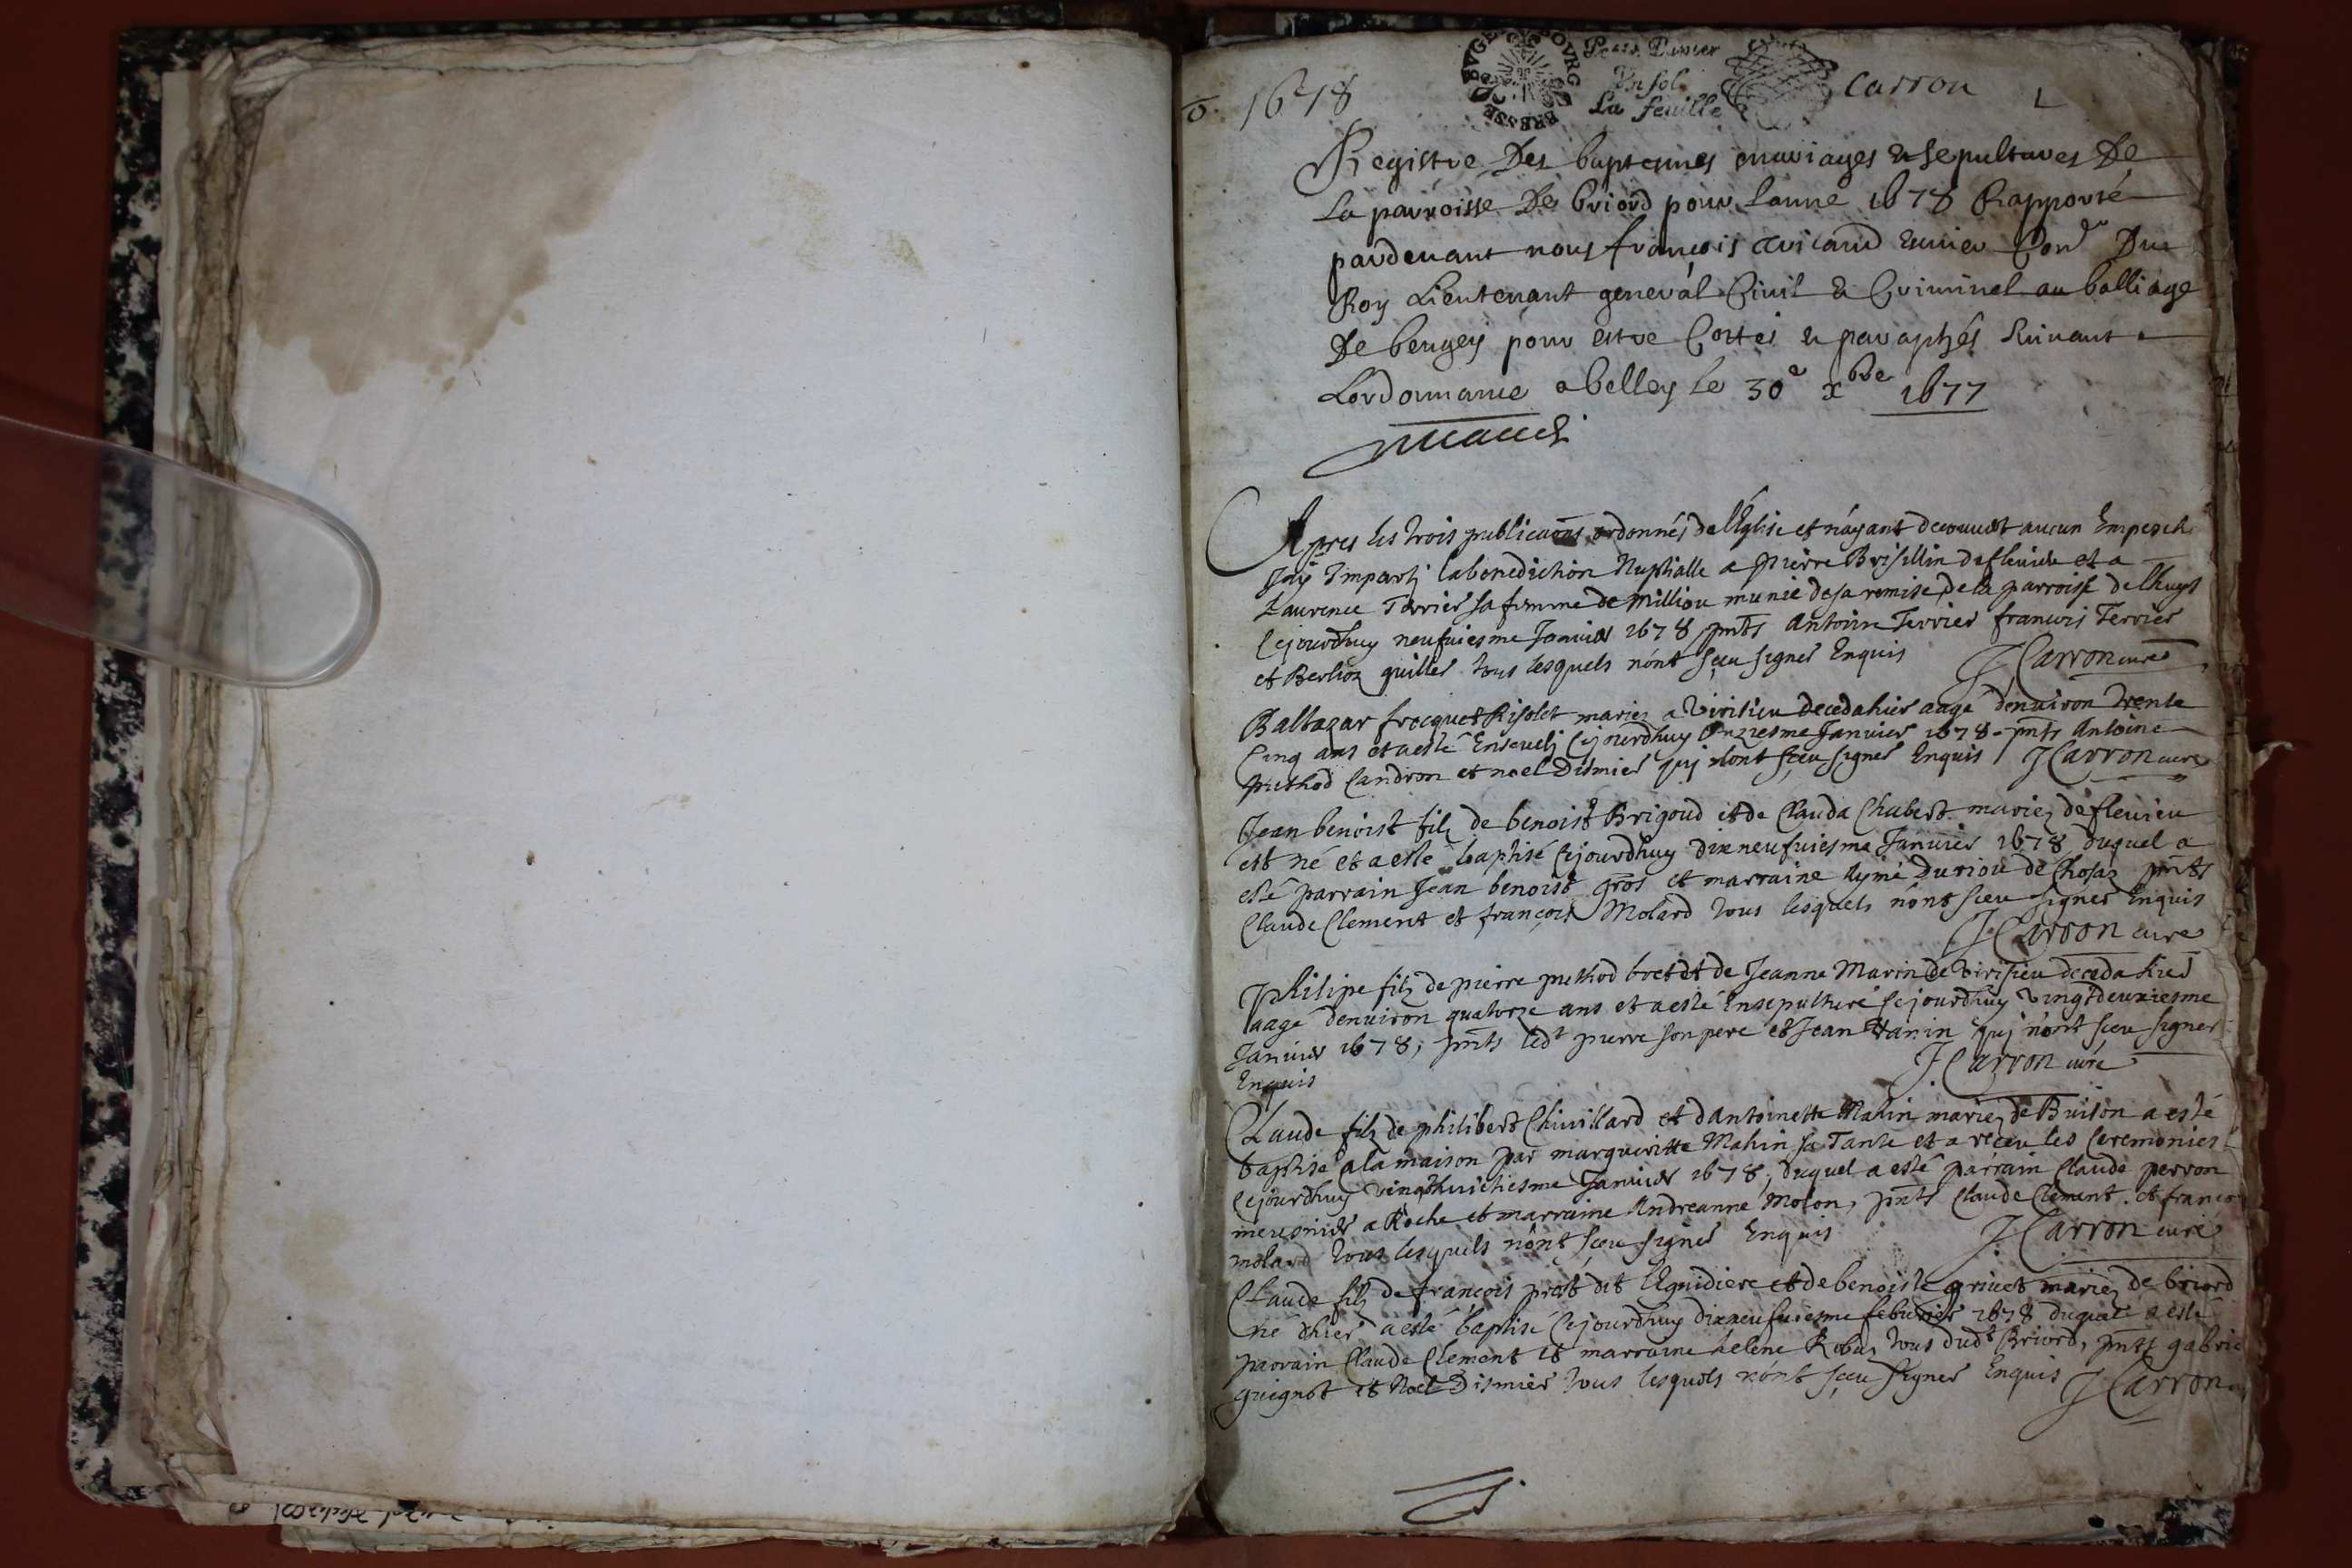 1678
BVGE BOVRG BRESSE
Pour Papier
Un sol
La feuille
Carron
Registre Des baptesmes mariages & sepultures De
La parroisse De briord pour Lanne 1678 Rapporté
pardeuant nous françois Con.er Du
Roy Lieutenant general Ciuil & Criminel au balliage
De beugey pour estre Cottes & paraphés suiuant
Lordonnance a belley le 30e xbre 1677
Apres les trois publicaõns ordonnés de l'Eglise et n'ayant decouuert aucun Empesch
J'ay Imparti la benediction Nuptialle a pierre Brisillin de fleuieu et a
Laurence Terrier sa femme de Milliou munie de sa remise de la parroisse de lhuys
Cejourdhuy neufuiesme Januier 1678 pnts Antoine Terrier francois Terrier
et Berlioz quiller tous lesquels n'ont sceu signer Enquis J Carron cure
Baltazar frecquet Risolet mariez a Virisieu deceda hier aagé denuiron trente
Cinq ans et a esté Enseueli Cejourdhuy Onziesme Januier 1678 pnts Antoine
puthod Candron et noel Dismier qui n'ont sceu signer Enquis J Carron cure
Jean benoist filz de benoist Brigoud et de Clauda Chabert mariez de fleurieu
est né et a esté baptisé Cejourdhuy dixneufuiesme Januier 1678 duquel a
esté parrain Jean benoist gros et marraine Aymé Duriou de Chosaz pnts
Claude Clement et françois Molard tous lesquels n'ont sceu signer Enquis
J Carron cure
Philipe filz de pierre puthod bret et de Jeanne Marin de Virisieu deceda hier
aagé denuiron quatorze ans et a esté Ensepulturé Cejourdhuy Vingtdeuxiesme
Januier 1678, pnts led.t pierre son pere et Jean Vanin qui n'ont sceu signer
Enquis J. Carron curé
Claude filz de philibert Chiuillard et dAntoinette Mahin mariez de Buison a esté
baptisé a la maison par margueritte Mahin sa Tante et a receu les Ceremonies
Cejourdhuy vingthuictiesme Januier 1678, duquel a esté parrain Claude perron
meusnier a Roche et marraine Andreanne Molon, pnts Claude Clement et franco
molard tous lesquels n'ont sceu signer Enquis J. Carron curé
Claude filz de françois prost dit lAguidiere et de benoiste griuet mariez de briord
né dhier a esté baptisé Cejourdhuy dixneufuiesme feburier 1678 duquel a esté
parrain Claude Clement et marraine helene Robin tous dud.t Briord, pnts gabrie
guignot et Noel Dismier tous lesquels n'ont sceu signer Enquis J Carron